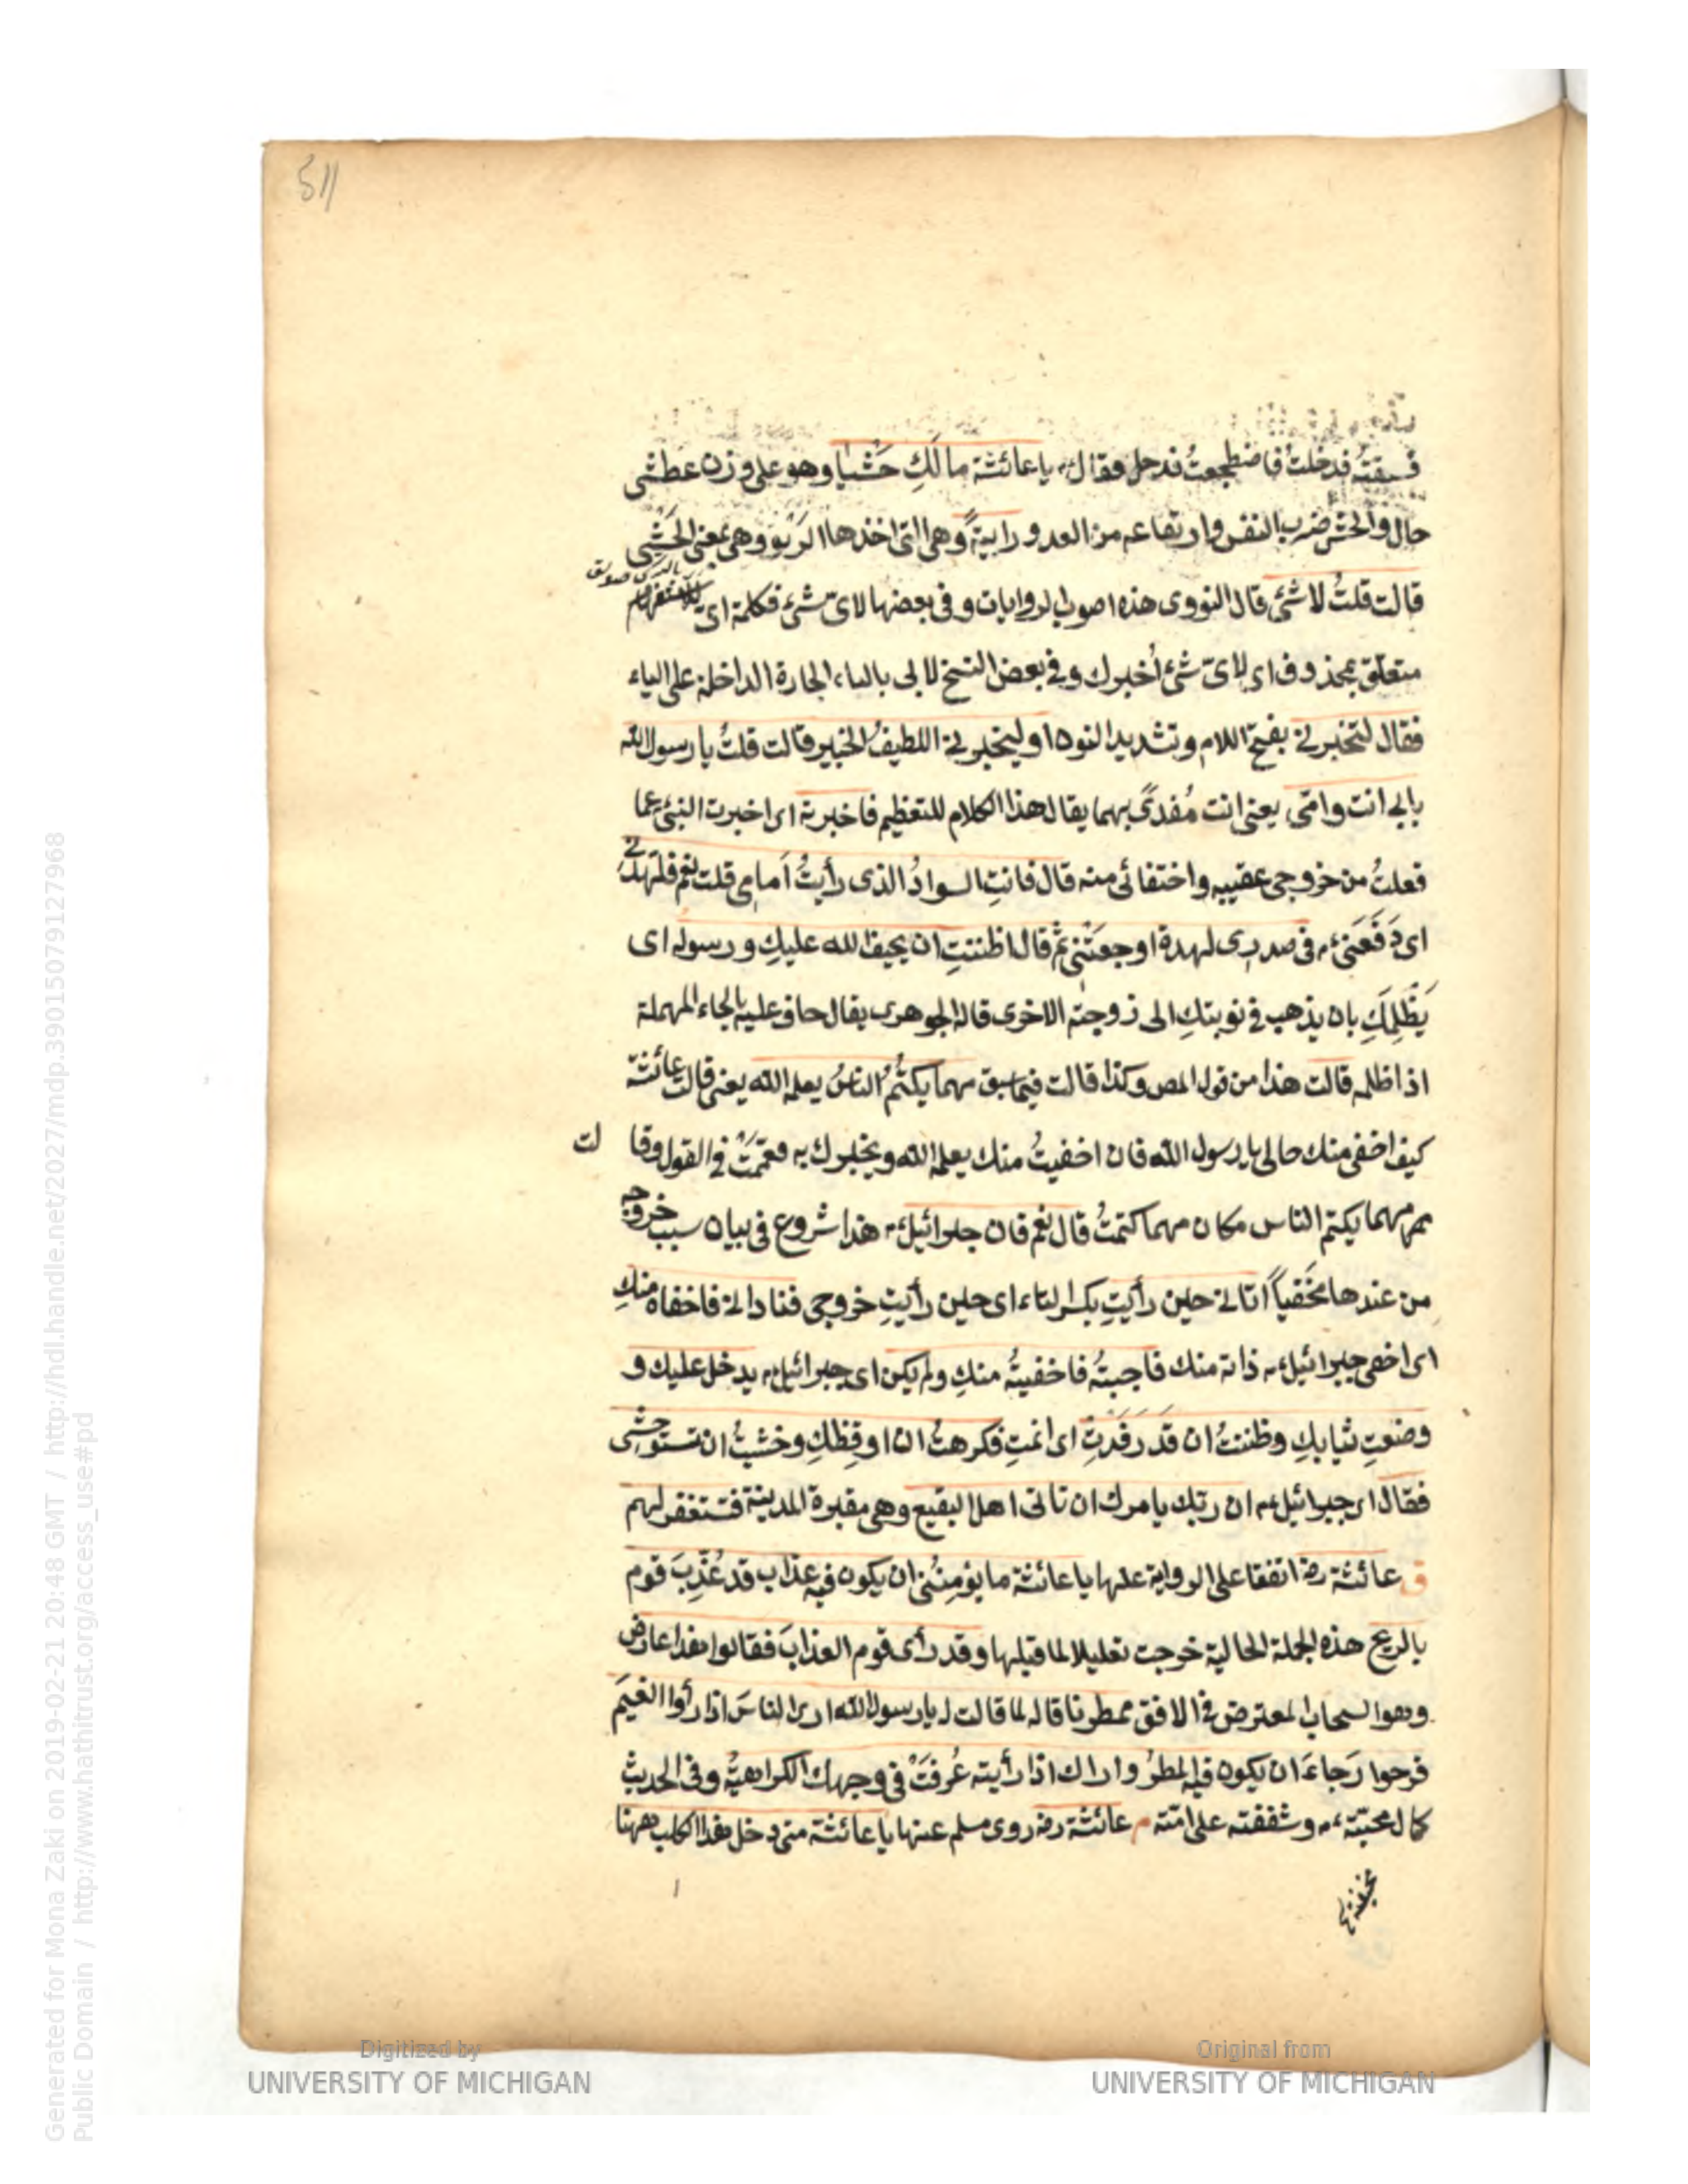 511
فسبقتُه فدخلتُ فاضطجعتُ فدخل فقال ء م يا عائشة ما لَكِ حَشْيا وهو على وزن عطشى
حال والحشى ضرب النفس وارتفاعه من العدو رابيةً وهى التى اخذها الرَبْو وهى بمعنى الحَشْيى
قالت قلتُ لا شئ قال النووى هذه اصوب الروايات وفى بعضها لاىّ شئ فكلمة اى للاستفهام
متعلّق بمحذوف اى لاىّ شئ أخبرك وفى بعض النسخ لا بى بالباء الجارة الداخلة على الياء
فقال لتخبرنى بفتح اللام وتشديد النون او ليخبرنى اللطيفُ الخبير قالت قلتُ يا رسول الله
بابى انت وامّى يعنى انت مُفدىً بهما يقال هذا الكلام للتعظيم فاخبرته اى اخبرت النبىّ عما
فعلتُ من خروجى عقيبه واختفائى منه قال فانتِ السوادُ الذى رأيتُ اَمامى قلت نعم فلهدنى
اى دَفَعَنى ء م فى صدرى لهدة اوجعَتْنى ثم قال اظننتِ ان يحيف الله عليكِ ورسوله اى
يَظْلِمَكِ بان يذهب فى نوبتكِ الى زوجته الاخرى قال الجوهرى يقال حاف عليه بالحاء المهملة
اذا ظلمه قالت هذا من قول المص وكذا قالت فيما سبق مهما يكتُمُ الناسُ يعلمه الله يعنى قالت عائشة
كيف اخفى منك حالى يا رسول الله فان اخفيتُ منك يعلمه الله ويخبرك به فعمّمَتْ فى القول وقا لت
مهما يكتم الناس مكان مهما كتمتُ قال نعم فان جبرائيل ء م هذا شروع فى بيان سبب خروجه
من عندها مخفياً اتانى حين رأيتِ بكسر التاء اى حين رأيتِ خروجى فنادانى فاخفاه منكِ
اى اخفى جبرائيل ء م ذاته منك فاجبتُه فاخفيتُه منكِ ولم يكن اى جبرائيل ء م يدخل عليك و
وضعتِ ثيابكِ وظننتُ ان قَد رَقَدتِ اى انمتِ فكرهتُ ان اوقِظكِ وخشيتُ ان تستوحشى
فقال اى جبرائيل ء م ان ربّك يامرك ان تاتى اهل البقيع وهى مقبرة المدينة فتستغفر لهم
ق عائشة رض اتفقا على الرواية عنها يا عائشة ما يؤمِنُنى ان يكون فيه عذاب قد عُذِّبَ قوم
بالريح هذه الجملة الحالية خرجت تعليلا لما قبلها وقد رأى قوم العذابَ فقالوا هذا عارض
وهو السحاب المعترض فى الافق ممطرنا قاله لما قالت له يا رسول الله ارى الناسَ اذا رأوا الغيمَ
فرحوا رَجاءَ ان يكون فيه المطرُ واراك اذا رأيته عُرفَتْ فى وجهك الكراهيّة وفى الحديث
كمال محبّته ء م وشفقته على امّته م عائشة رض روى مسلم عنها يا عائشة متى دخل هذا الكلب ههنا
Digitized by
UNIVERSITY OF MICHIGAN
Original from
UNIVERSITY OF MICHIGAN
Generated for Mona Zaki on 2019-02-21 20:48 GMT / http://hdl.handle.net/2027/mdp.39015079127968
Public Domain / http://www.hathitrust.org/access_use#pd